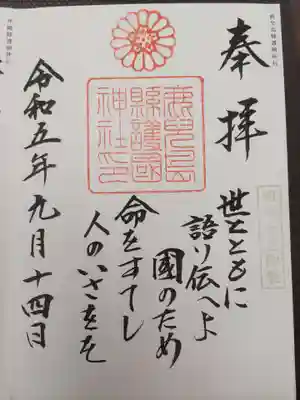 奉拝
世とともに
語り伝へよ
國のため
命をすてし
人のいさをを
鹿兒島
縣護國
神社印
令和五年九月十四日